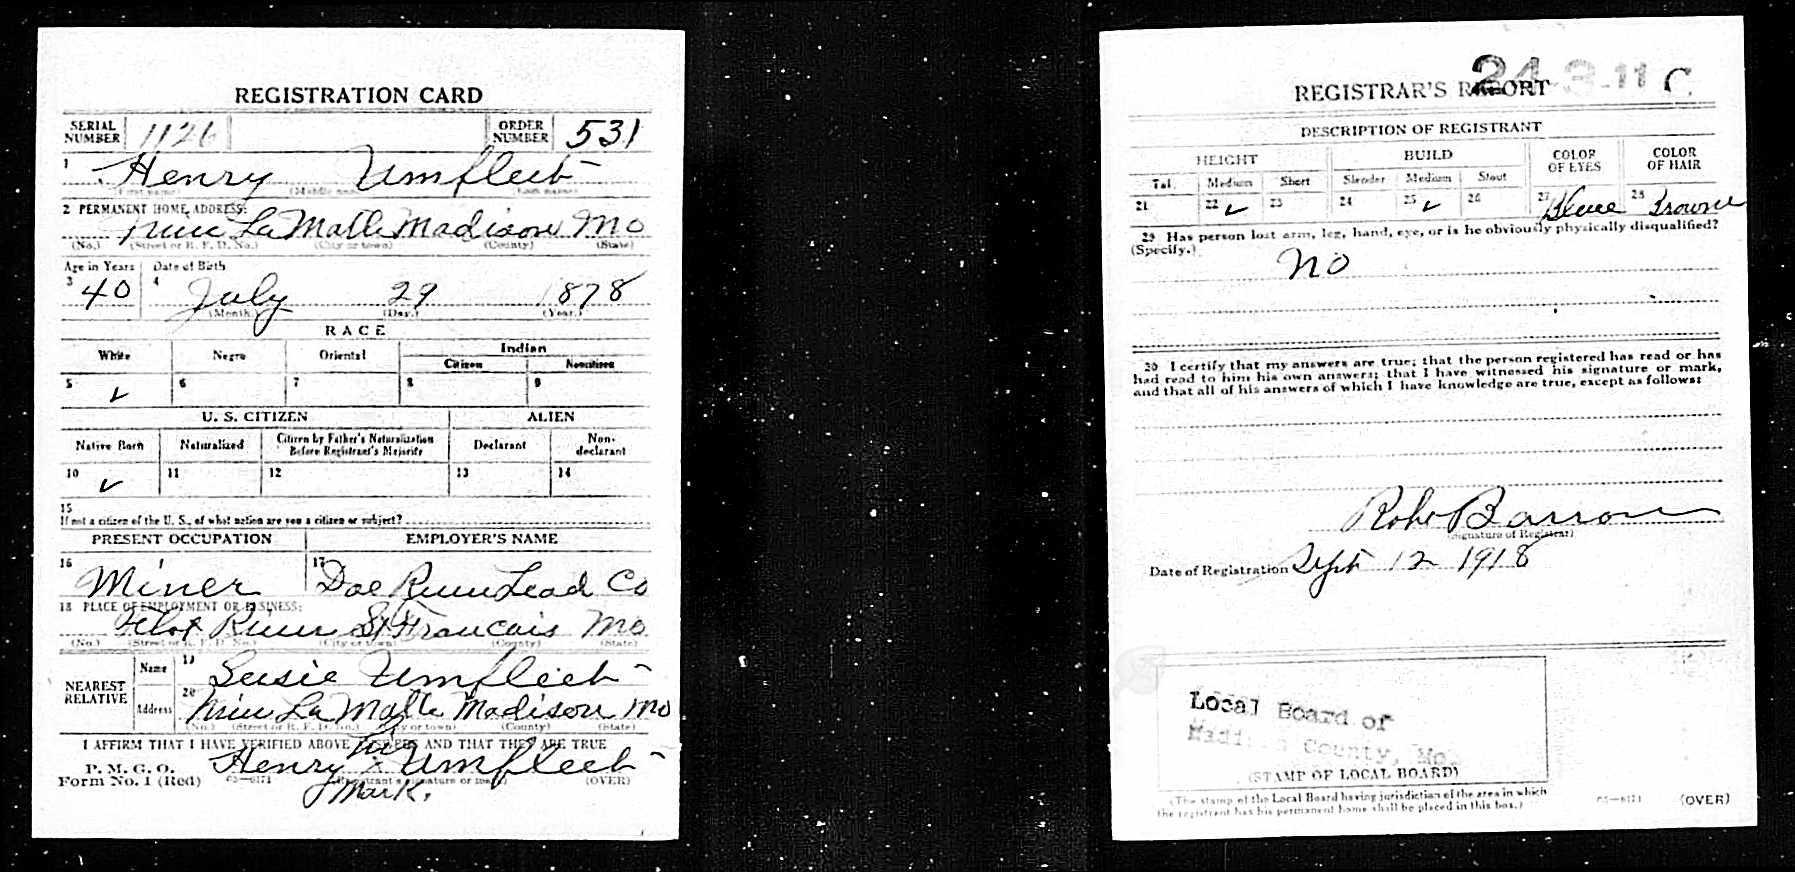 REGISTRATION CARD
SERIAL NUMBER 1126 ORDER NUMBER 531
1 Henry Umfleet
(First name) (Middle name) (Last name)
2 PERMANENT HOME ADDRESS:
Mine La Motte Madison Mo
(No.) (Street or R. F. D. No.) (City or town) (County) (State)
Age in Years Date of Birth
3 40 4 July 29 1878
(Month.) (Day.) (Year.)
RACE
White Negro Oriental Indian
Citizen Noncitizen
5 ✓ 6 7 8 9
U. S. CITIZEN ALIEN
Native Born Naturalized Citizen by Father's Naturalization Before Registrant's Majority Declarant Non-declarant
10 ✓ 11 12 13 14
15
If not a citizen of the U. S., of what nation are you a citizen or subject?
PRESENT OCCUPATION EMPLOYER'S NAME
16 Miner 17 Doe Run Lead Co
18 PLACE OF EMPLOYMENT OR BUSINESS:
Flat River St Francais Mo
(No.) (Street or R. F. D. No.) (City or town) (County) (State)
NEAREST RELATIVE Name 19 Susie Umfleet
Address 20 Mine La Motte Madison Mo
(No.) (Street or R. F. D. No.) (City or town) (County) (State)
I AFFIRM THAT I HAVE VERIFIED ABOVE ANSWERS AND THAT THEY ARE TRUE
P. M. G. O.
Form No. 1 (Red) 03—6171 Henry his x Umfleet
(Registrant's signature or mark) (OVER)
Mark.
24-3-11 C
REGISTRAR'S REPORT
DESCRIPTION OF REGISTRANT
HEIGHT BUILD COLOR OF EYES COLOR OF HAIR
Tall Medium Short Slender Medium Stout
21 22 ✓ 23 24 25 ✓ 26 27 Blue 28 Brown
29 Has person lost arm, leg, hand, eye, or is he obviously physically disqualified?
(Specify.) No
30 I certify that my answers are true; that the person registered has read or has
had read to him his own answers; that I have witnessed his signature or mark,
and that all of his answers of which I have knowledge are true, except as follows:
Robt Barron
(Signature of Registrar)
Date of Registration Sept 12 1918
Local Board of
Madison County, Mo.
(STAMP OF LOCAL BOARD)
(The stamp of the Local Board having jurisdiction of the area in which
the registrant has his permanent home shall be placed in this box.)
03—6171 (OVER)